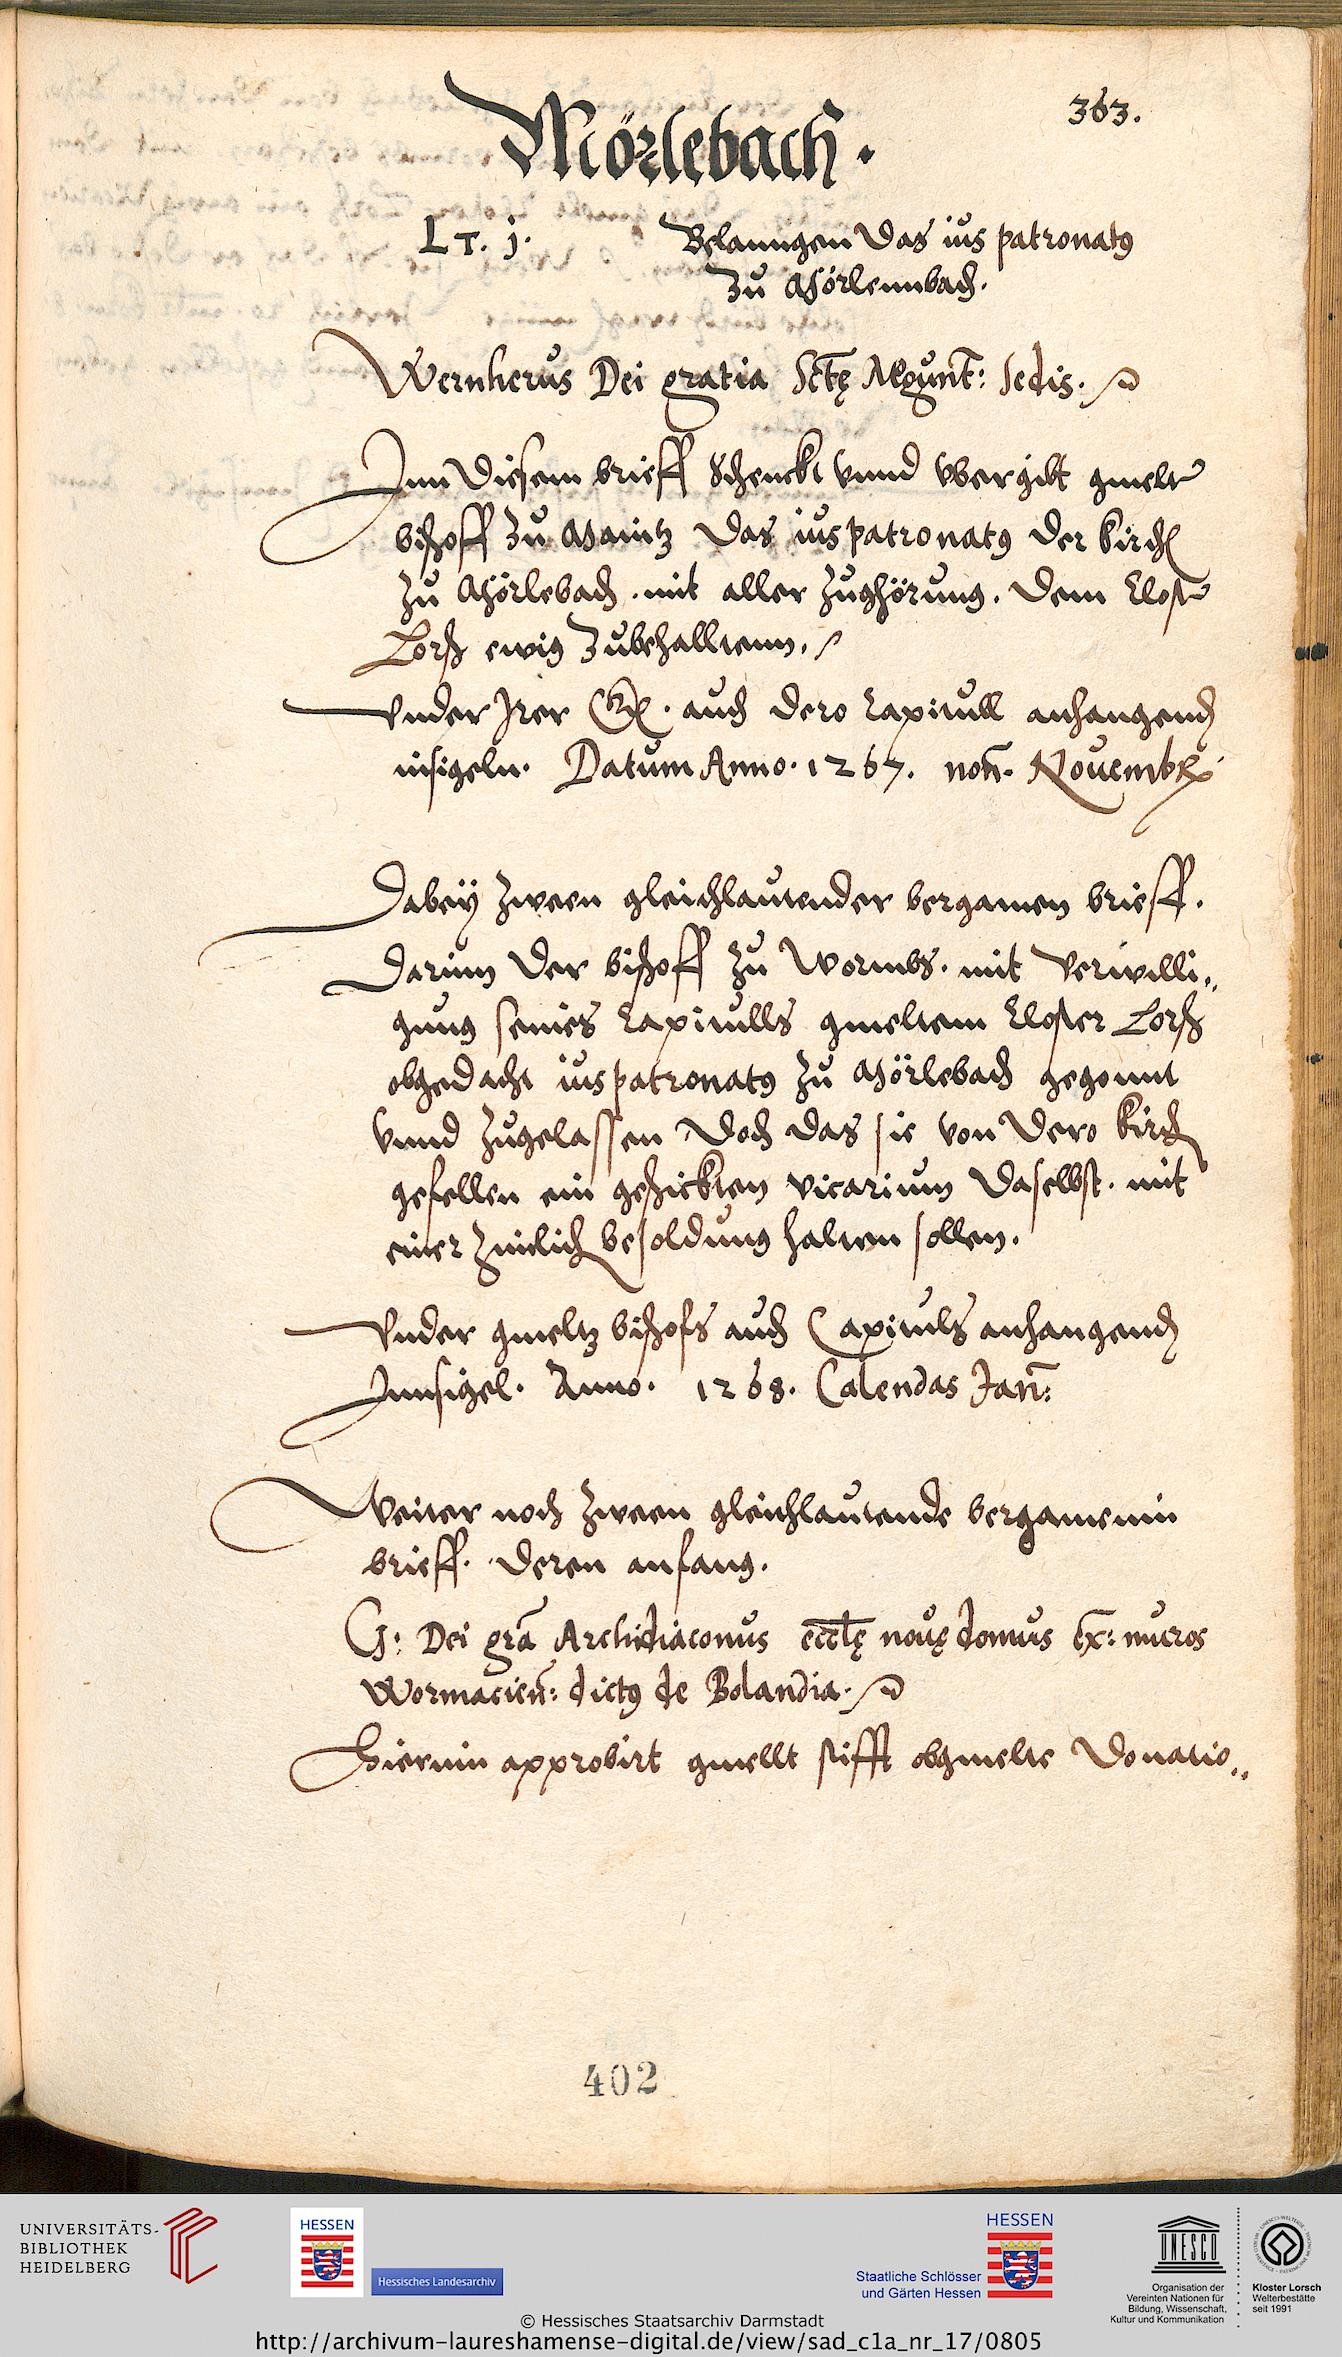 363.
Mörlebach.
Lt. j. Belanngen das ius patronatus
zu Mörlennbach.
Wernherus Dei gratia Sctę Mogunt: sedis.
Inn diesem brieff schenckt vnnd vbergibt gmelter
bischoff zu Maintz das ius patronatus der kirchen
zu Mörlebach. mit aller zughörung. dem Closter
Lorsch ewig zubehalltenn.
Vnder Irer auch dero Capitull anhangenden
insigeln. Datum Anno. 1267. non. Nouembr
Dabey zween gleichlautender bergamen brieff.
Darinn der bischoff zu Wormbs. mit verwilli„
gung seines Capitulls gmeltem Closter Lorsch
obgedacht ius patronatus zu Mörlebach gegonnt
vnnd zugelassen doch das sie von dero kirchen
gefellen ein geschickten vicarium daselbst. mit
einer zimlichen besoldung halten sollen.
Vnder gmeltz bischofs auch Capituls anhangenden
Innsigel. Anno. 1268. Calendas Jan:
Weiter noch zween gleichlautende bergamenin
brieff. deren anfang.
G: Dei gra Archidiaconus ecctę nouę domus ex: muros
Wormacien: dictus de Bolandia.
Hierinn approbirt gmellt stifft obgmelte Donatio„
402
UNIVERSITÄTS-
BIBLIOTHEK
HEIDELBERG
HESSEN
Hessisches Landesarchiv
HESSEN
Staatliche Schlösser
und Gärten Hessen
UNESCO
Organisation der
Vereinten Nationen für
Bildung, Wissenschaft,
Kultur und Kommunikation
Kloster Lorsch
Welterbestätte
seit 1991
© Hessisches Staatsarchiv Darmstadt
http://archivum-laureshamense-digital.de/view/sad_c1a_nr_17/0805